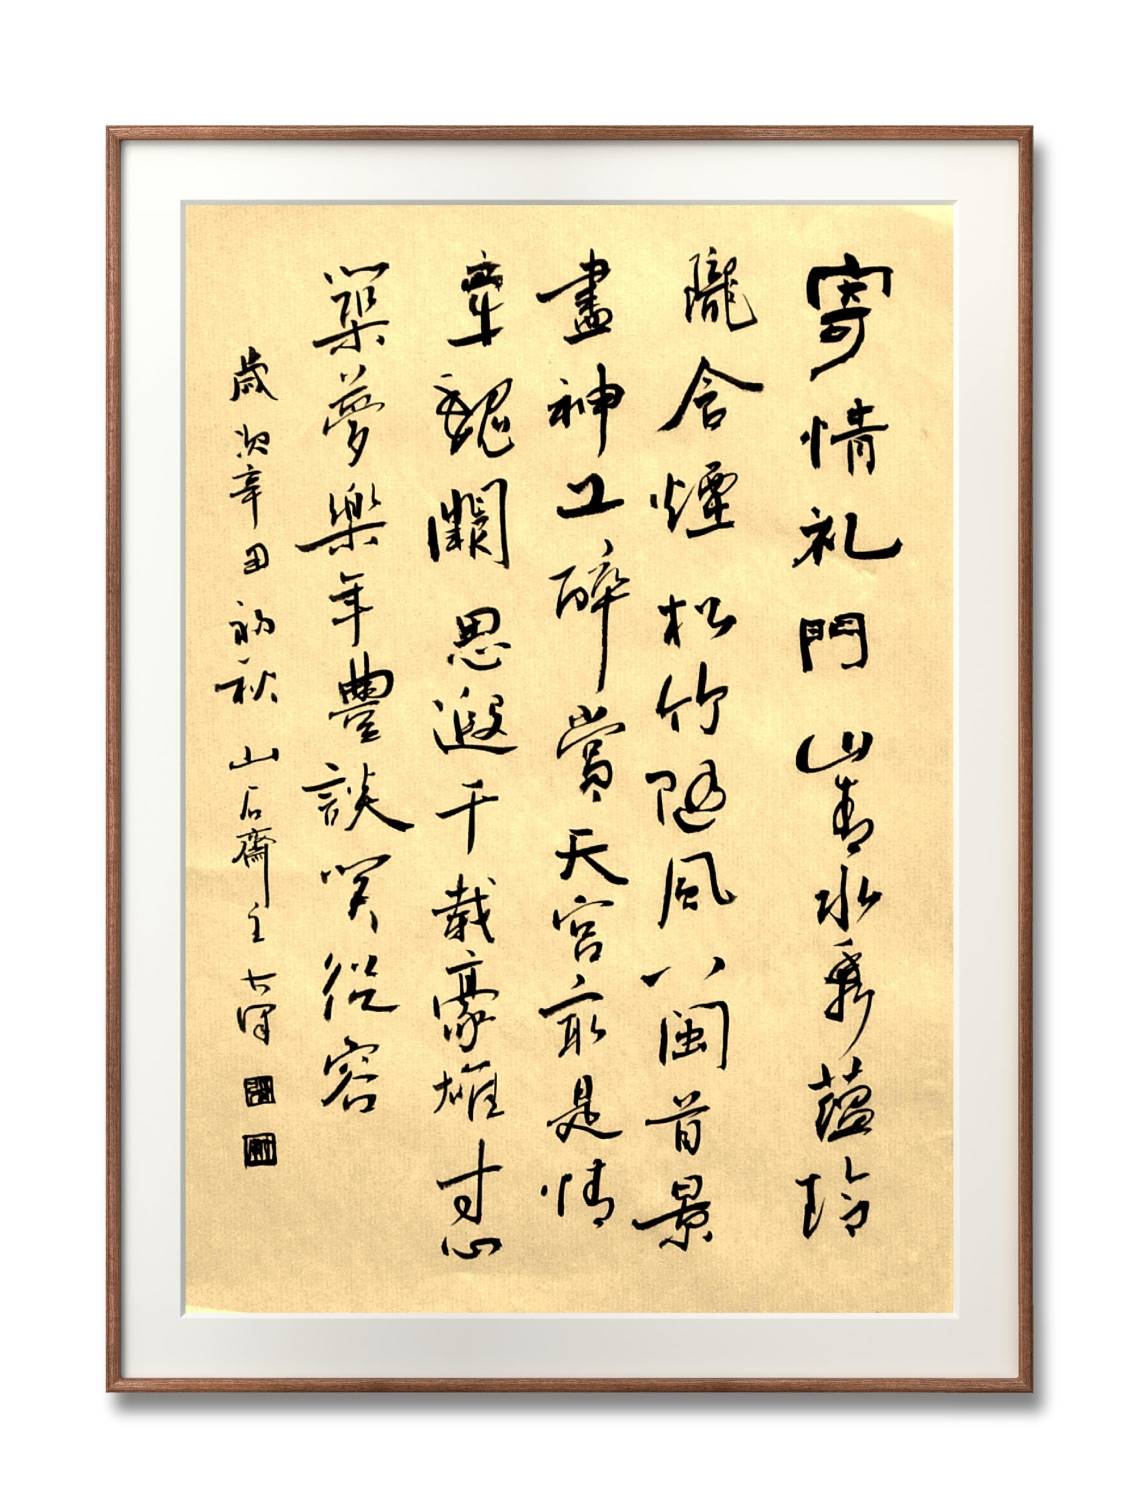 寄情礼門山青水秀蘊玲
隴含煙松竹随風八閩首景
盡神工醉賞天宫最是情
牽魏闕思遐千載豪雄寸心
築夢樂年豐談笑從容
歲次辛丑初秋山石齋主大澤